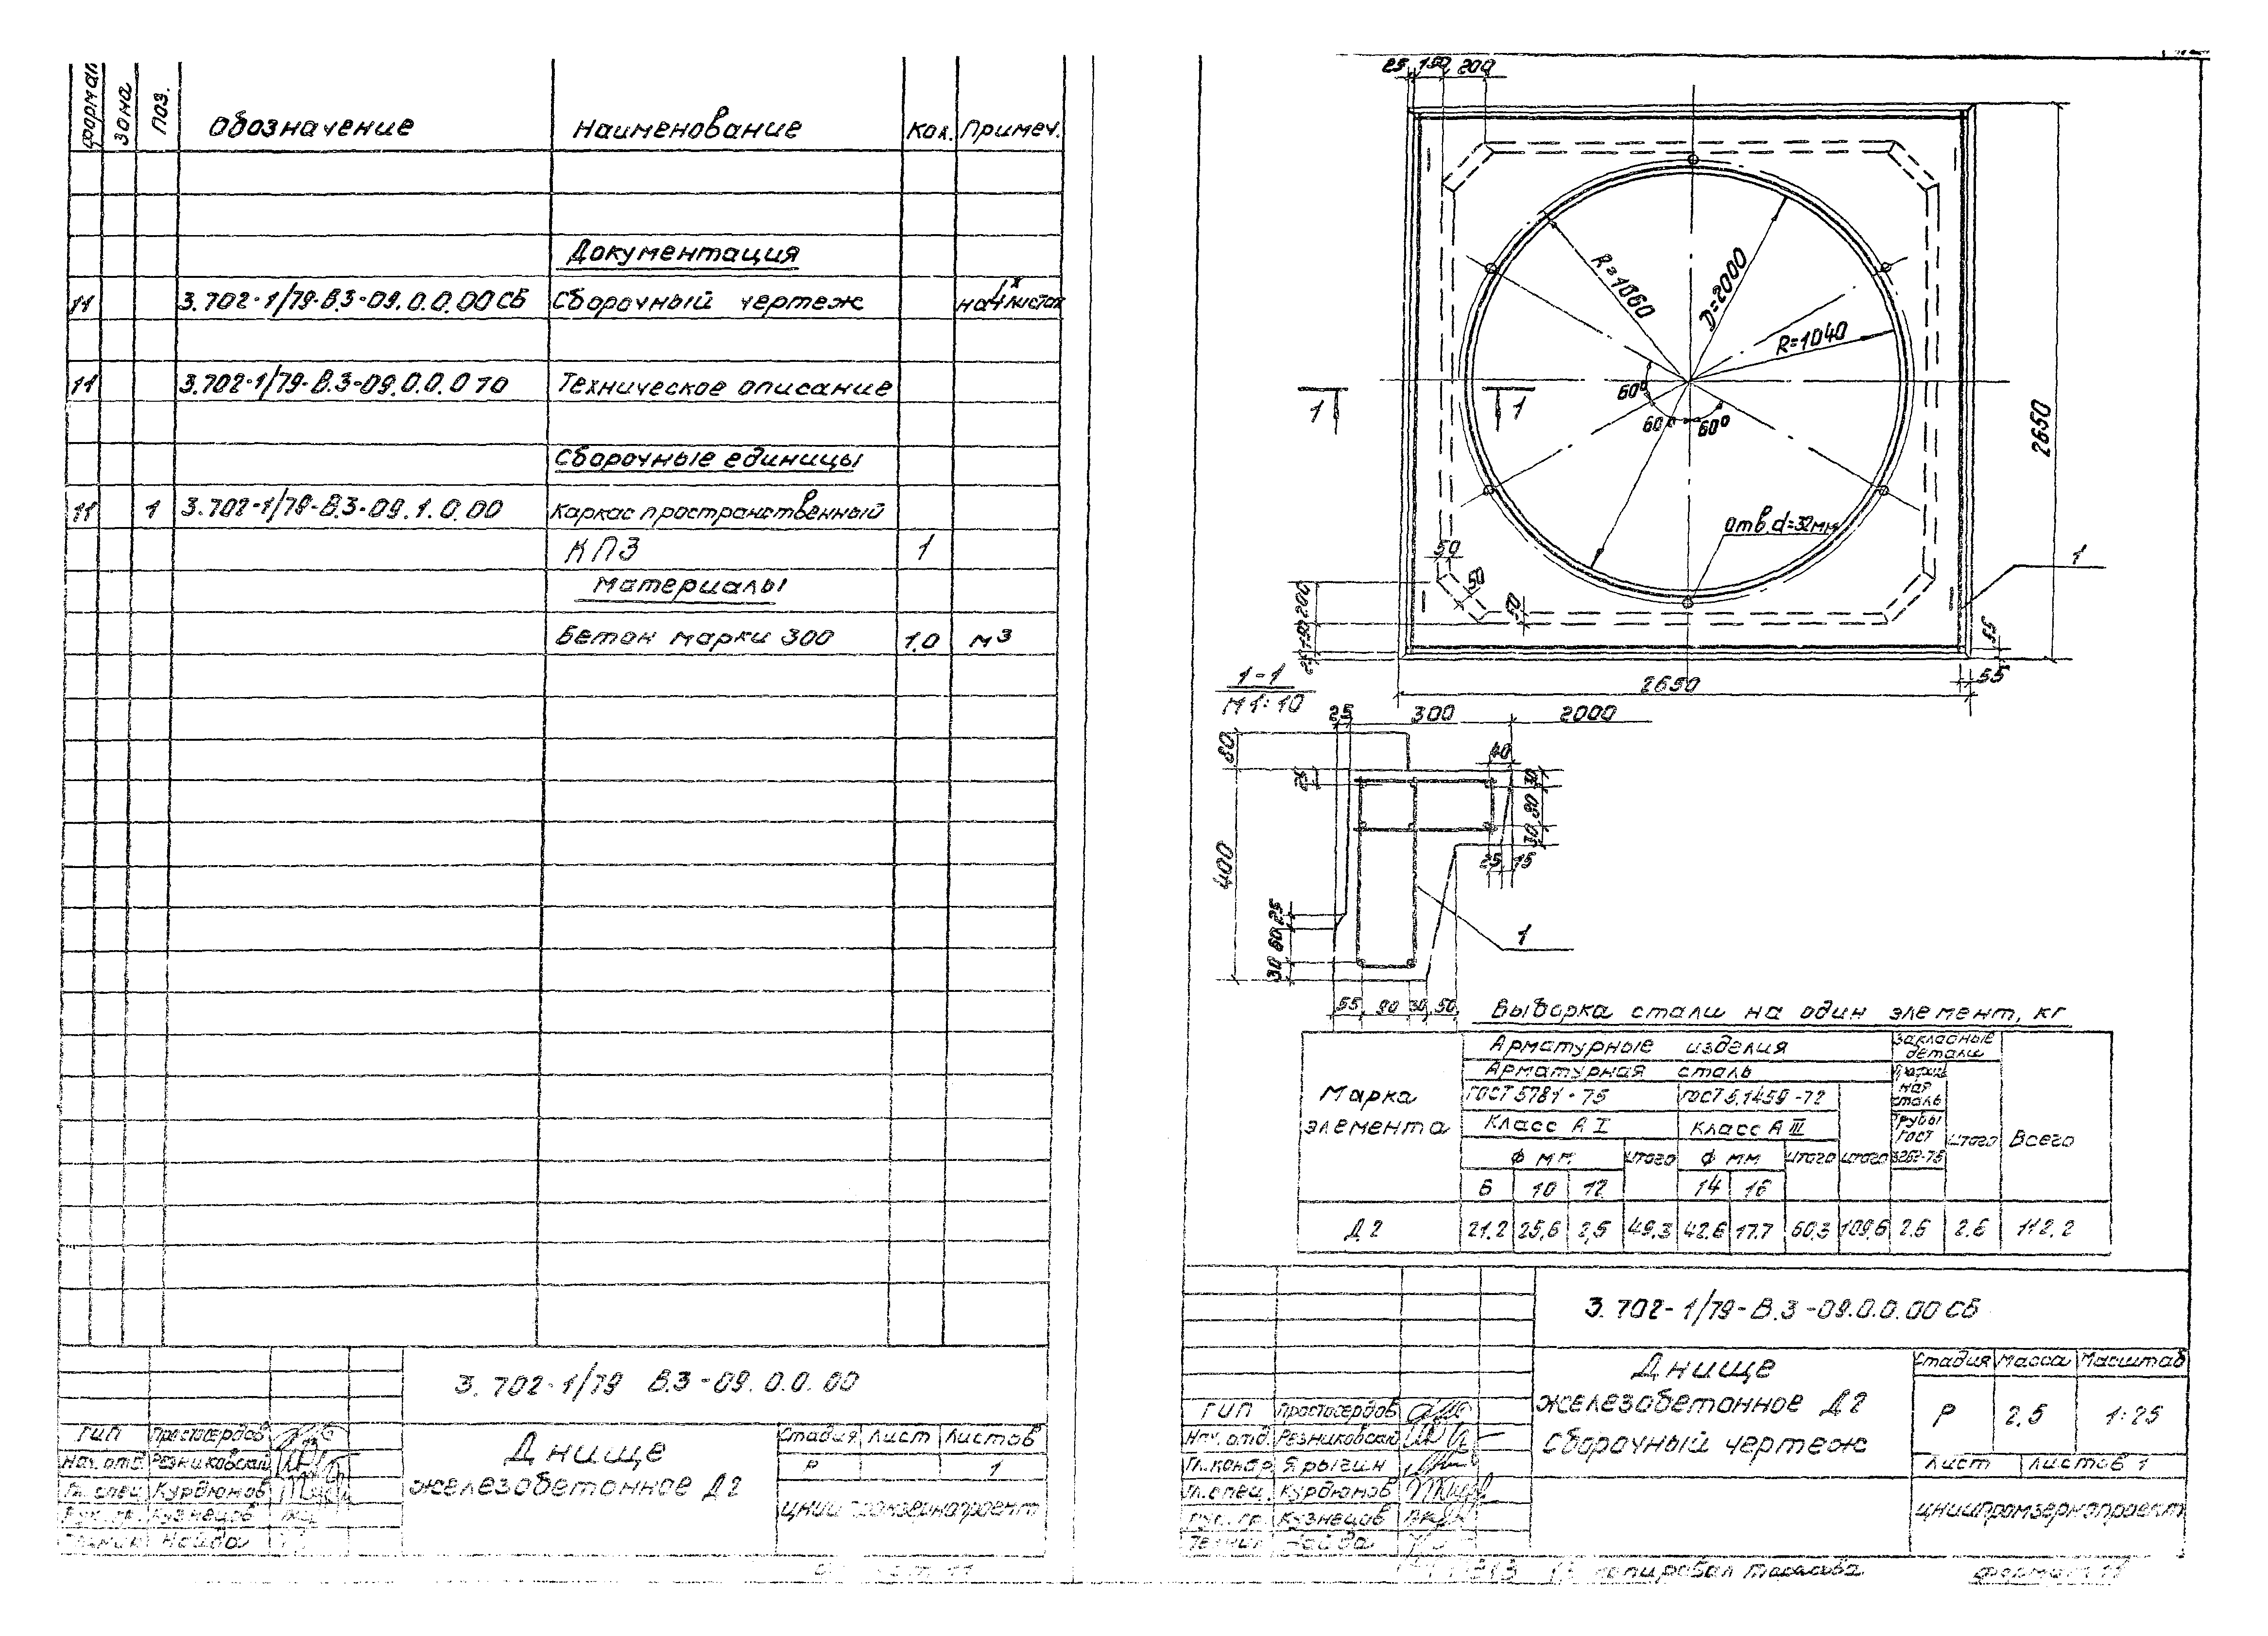 формат зона поз. Обозначение Наименование Кол. Примеч.
Документация
11 3.702-1/79-В.3-09.0.0.00СБ Сборочный чертеж
11 3.702-1/79-В.3-09.0.0.0ТО Техническое описание
Сборочные единицы
11 1 3.702-1/79-В.3-09.1.0.00 Каркас пространственный
КП3 1
Материалы
Бетон марки 300 1.0 м3
3.702-1/79 В.3-09.0.0.00
ГИП Простосердов
Нач. отд. Резниковский
Гл. спец. Курдюмов
Рук. гр. Кузнецов
Техник Найда
Днище
железобетонное Д2
Стадия Лист Листов
Р 1
25 150 200
R=1060
D=2000
R=1040
60°
60°
60°
1 1
2650
отв. d=32мм
50
50
50
200
150
25
1
55
55
2650
1-1
М 1:10
25 300 2000
80
40
25
30
90
30
25 15
400
25
60
30
1
55 90 30 50
Выборка стали на один элемент, кг
Марка элемента
Арматурные изделия
Закладные детали
Арматурная сталь
ГОСТ 5781-75 ГОСТ 5.1459-72
Класс А I Класс А III
Трубы ГОСТ 3262-75
Ф мм Итого Ф мм Итого Итого Итого Всего
6 10 12 14 16
Д2 21.2 25,6 2,5 49.3 42.6 17.7 60.3 109.6 2.6 2.6 112.2
3.702-1/79-В.3-09.0.0.00СБ
ГИП Простосердов
Нач. отд. Резниковский
Гл. контр. Ярыгин
Гл. спец. Курдюмов
Рук. гр. Кузнецов
Техник Найда
Днище
железобетонное Д2
Сборочный чертеж
Стадия Масса Масштаб
Р 2,5 1:25
Лист Листов 1
ЦНИИпромзернопроект
копировал
формат 11